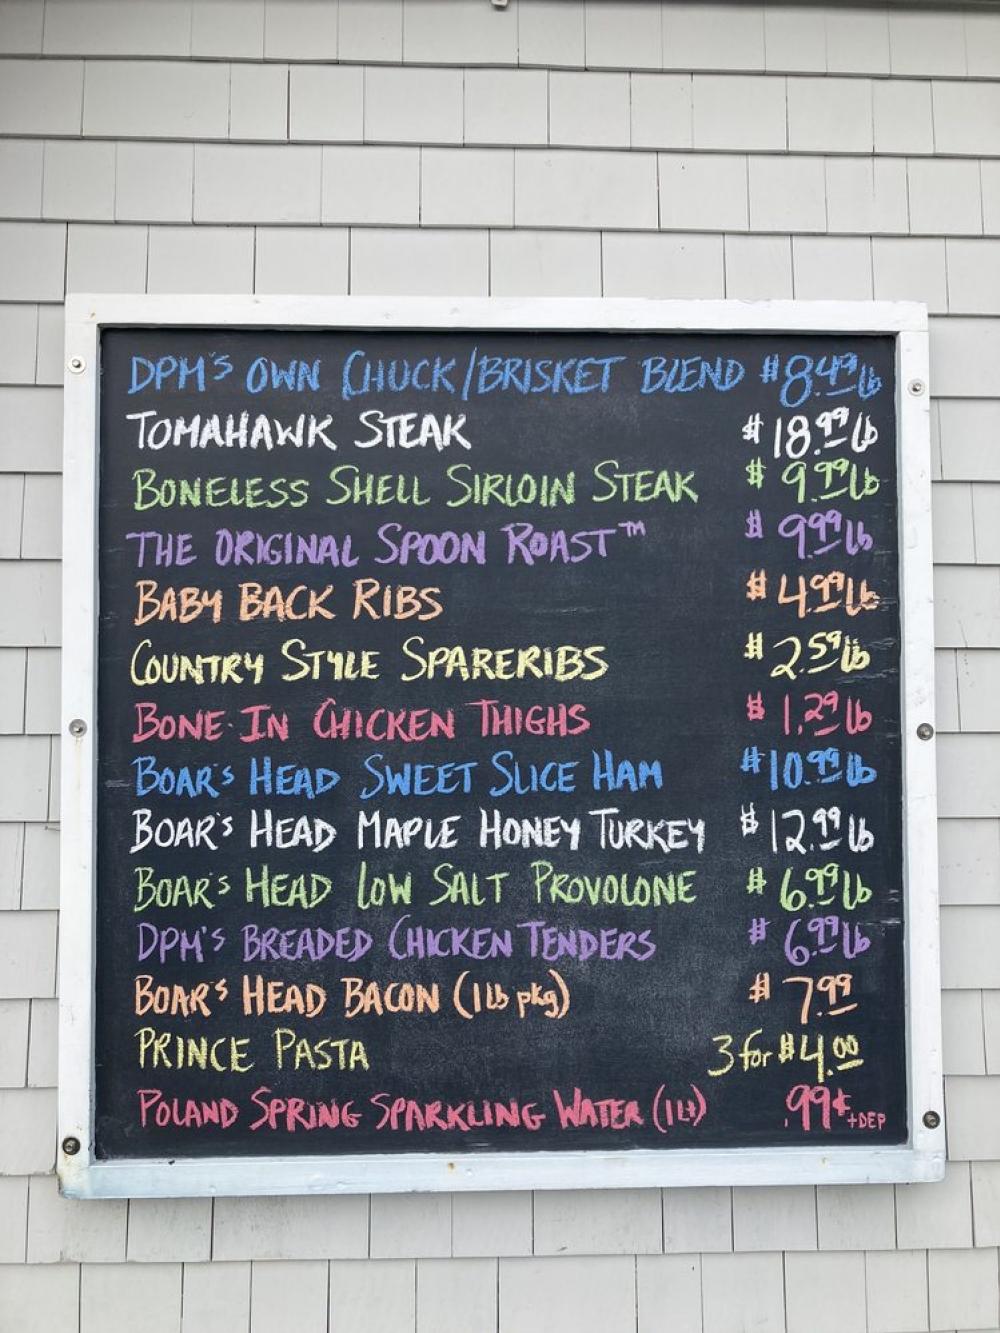 DPM'S OWN CHUCK/BRISKET BLEND $8.49 lb
TOMAHAWK STEAK $18.99 lb
BONELESS SHELL SIRLOIN STEAK $9.99 lb
THE ORIGINAL SPOON ROAST™ $9.99 lb
BABY BACK RIBS $4.99 lb
COUNTRY STYLE SPARERIBS $2.59 lb
BONE-IN CHICKEN THIGHS $1.29 lb
BOAR'S HEAD SWEET SLICE HAM $10.99 lb
BOAR'S HEAD MAPLE HONEY TURKEY $12.99 lb
BOAR'S HEAD LOW SALT PROVOLONE $6.99 lb
DPM'S BREADED CHICKEN TENDERS $6.99 lb
BOAR'S HEAD BACON (1 lb pkg) $7.99
PRINCE PASTA 3 for $4.00
POLAND SPRING SPARKLING WATER (1 Lt) .99¢ +DEP